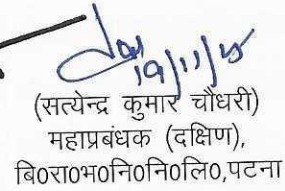 19/11/25
(सत्येन्द्र कुमार चौधरी)
महाप्रबंधक (दक्षिण),
बि०रा०भ०नि०नि०लि०,पटना